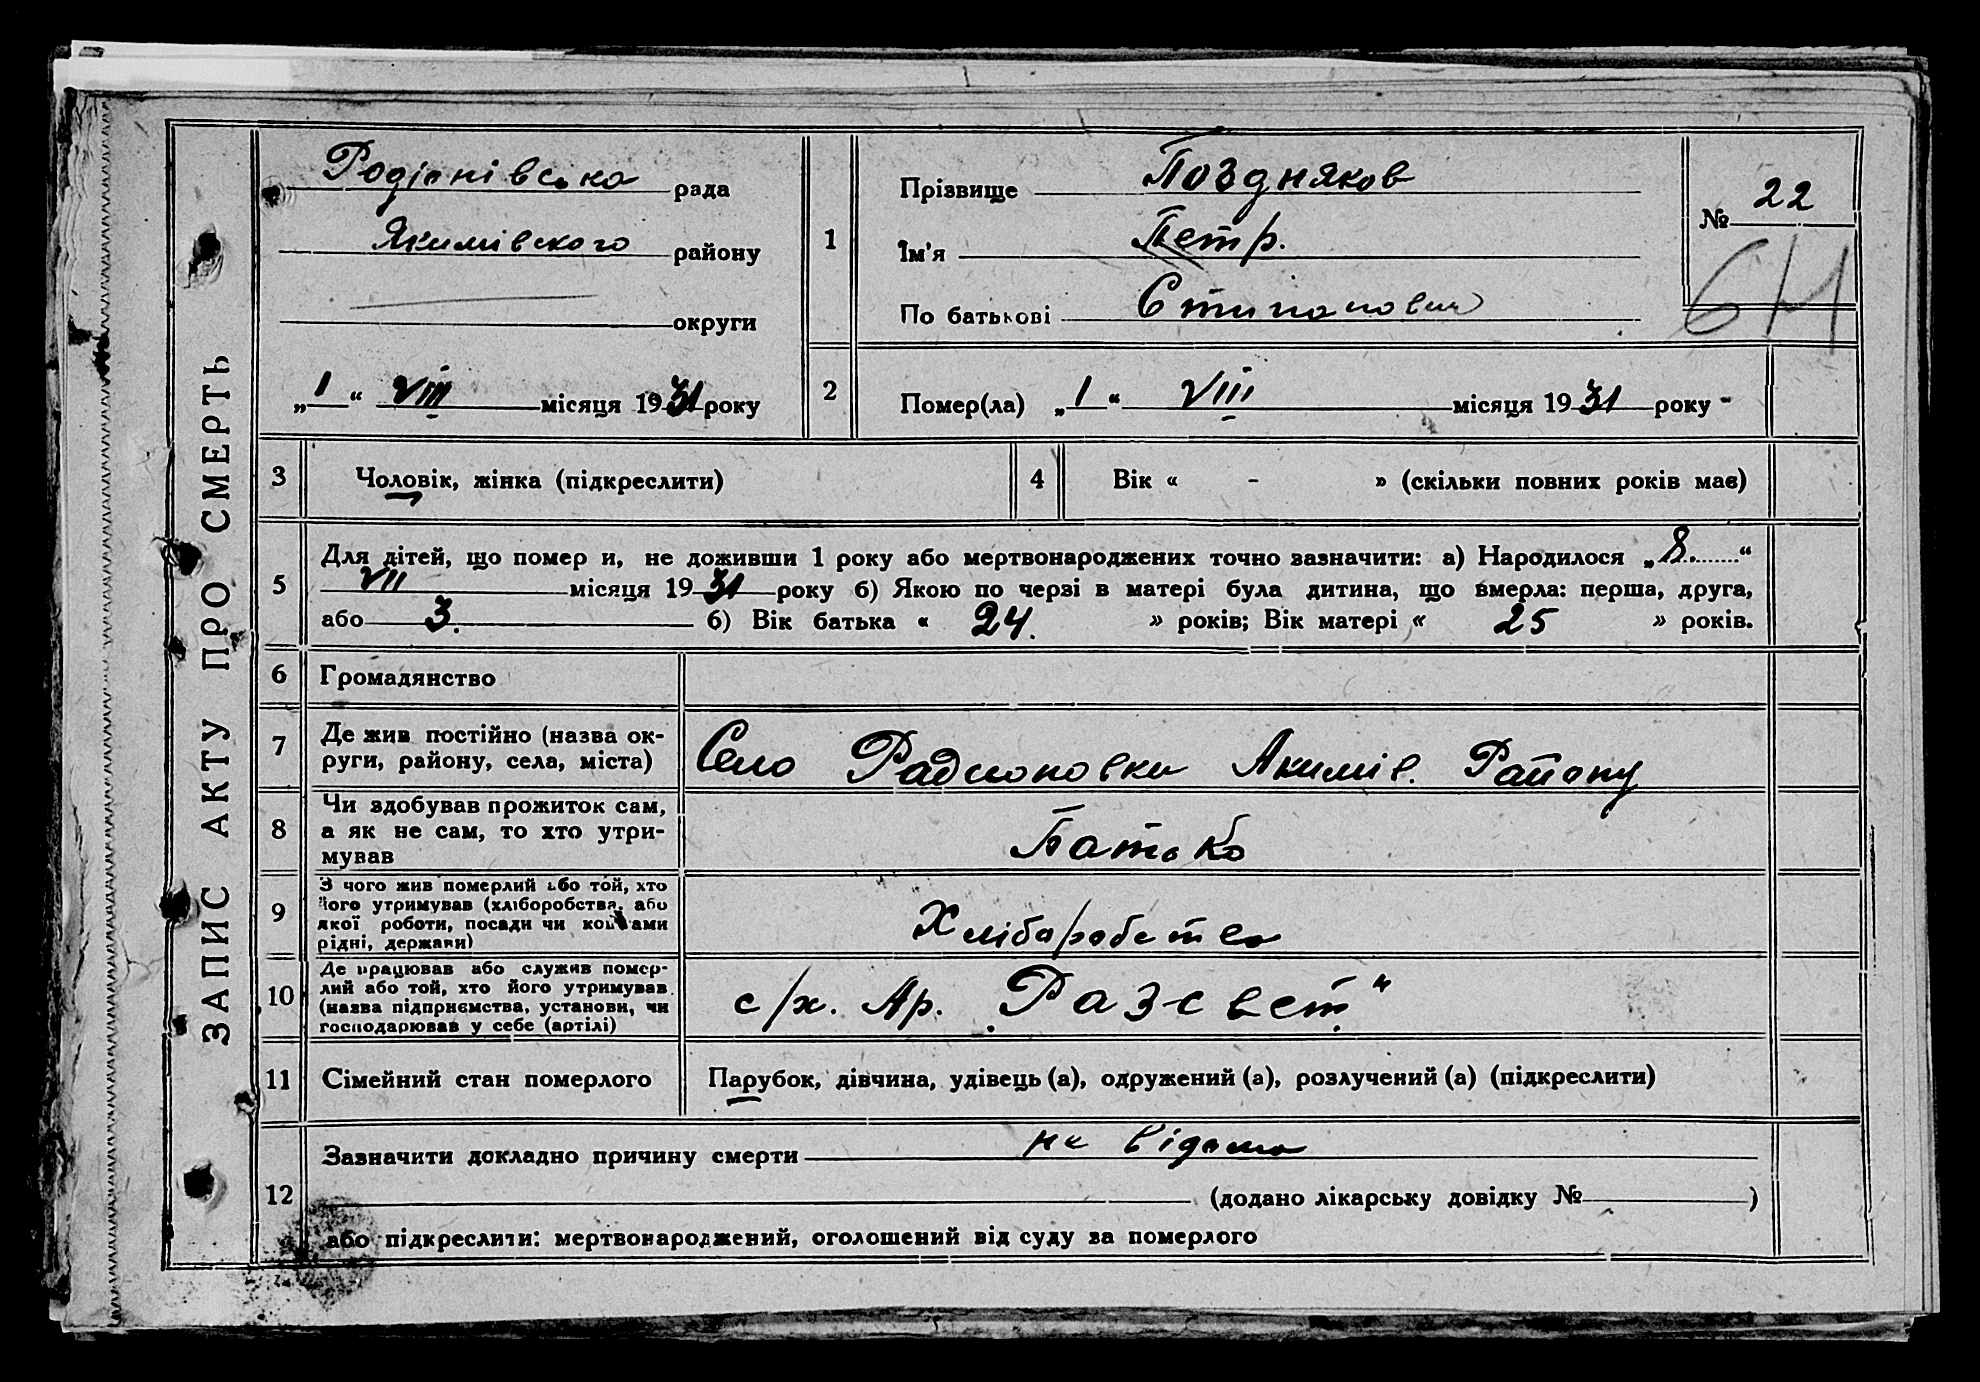 ЗАПИС АКТУ ПРО СМЕРТЬ
Родіонівська рада
Якимівского району
округи
„ 1 “ VIII місяця 1931 року
1
Прізвище Поздняков
Ім’я Петр.
По батькові Стипанович
№ 22
2
Помер(ла) „ 1 “ VIII місяця 1931 року
3
Чоловік, жінка (підкреслити)
4
Вік « - » (скільки повних років має)
5
Для дітей, що помер и, не доживши 1 року або мертвонароджених точно зазначити: а) Народилося „ 8. “
VII місяця 1931 року б) Якою по черзі в матері була дитина, що вмерла: перша, друга,
або 3. б) Вік батька « 24. » років; Вік матері « 25 » років.
6
Громадянство
7
Де жив постійно (назва ок-
руги, району, села, міста)
Село Радионовки Акимів. Району
8
Чи здобував прожиток сам,
а як не сам, то хто утри-
мував
Батько
9
З чого жив померлий або той, хто
його утримував (хліборобства, або
якої роботи, посади чи коштами
рідні, держави)
Хліборобство
10
Де працював або служив помер-
лий або той, хто його утримував
(назва підприємства, установи, чи
господарював у себе (артілі)
с/х. Ар. „Разсвет“
11
Сімейний стан померлого
Парубок, дівчина, удівець (а), одружений (а), розлучений (а) (підкреслити)
12
Зазначити докладно причину смерти не відомо
(додано лікарську довідку № )
або підкреслити: мертвонароджений, оголошений від суду за померлого